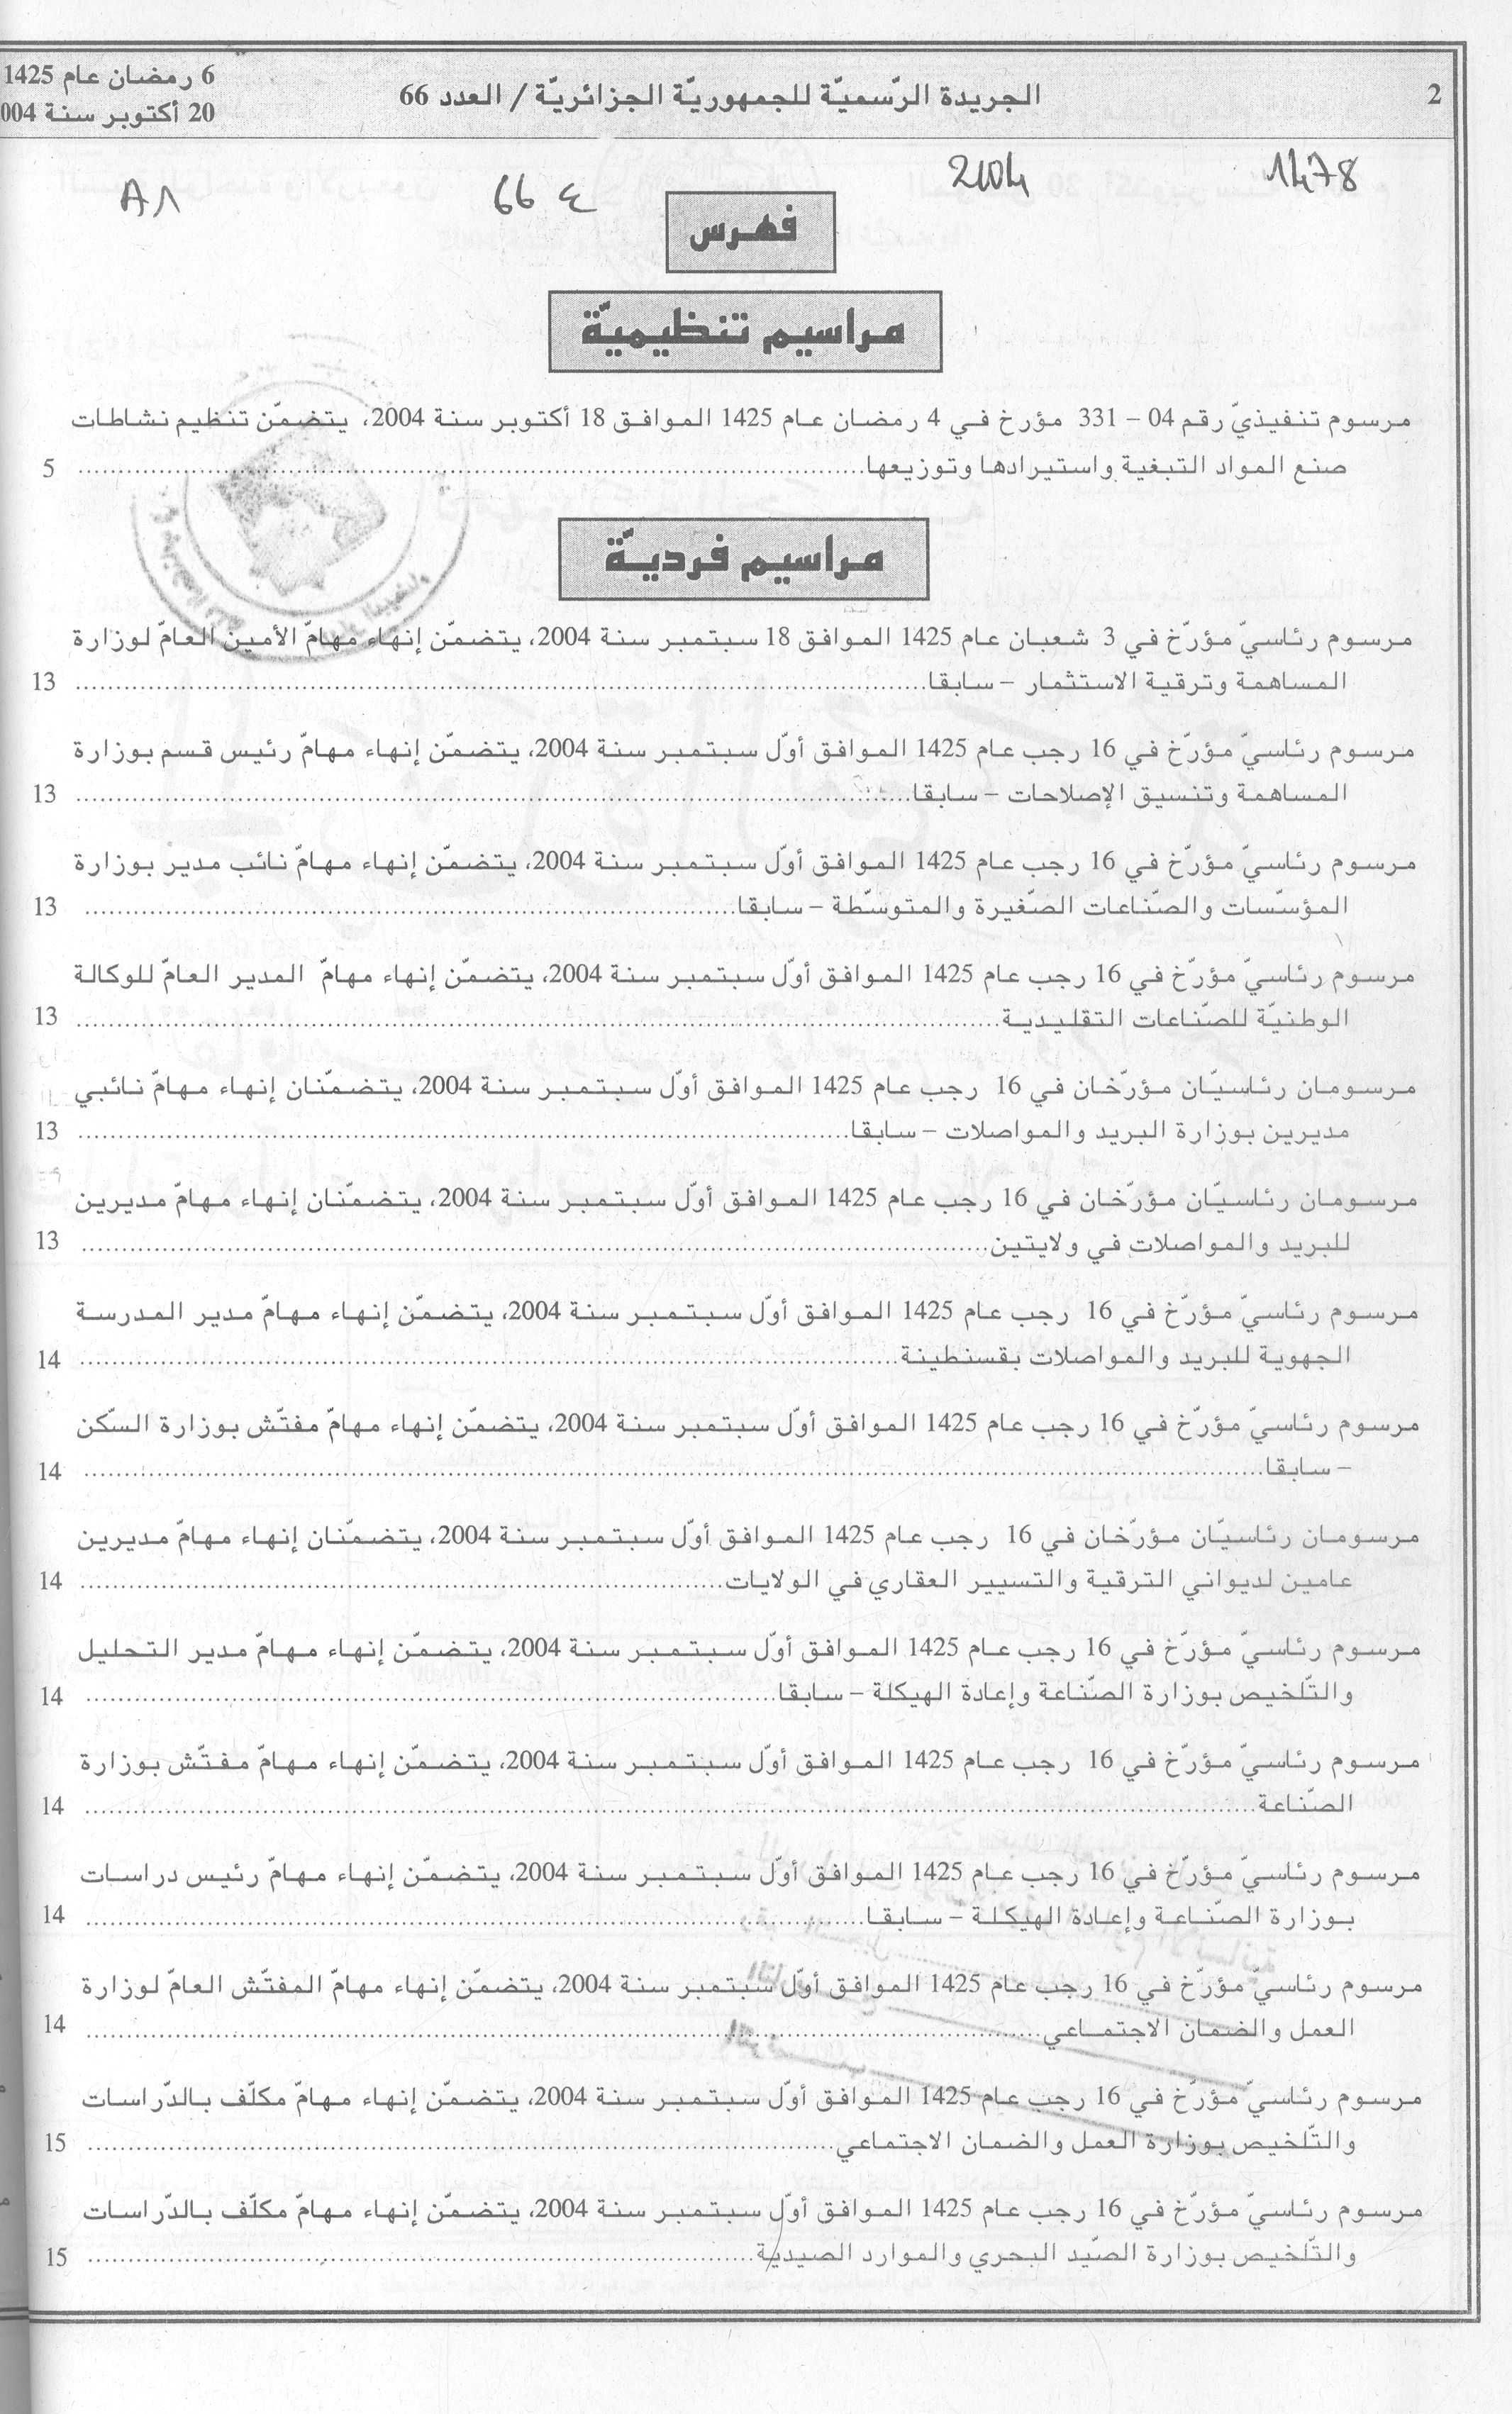 2
الجريدة الرّسميّة للجمهوريّة الجزائريّة / العدد 66
6 رمضان عام 1425
20 أكتوبر سنة 004
1478
2104
66 ع
A1
فهرس
مراسيم تنظيميّة
مرسوم تنفيذيّ رقم 04 – 331 مؤرخ في 4 رمضان عام 1425 الموافق 18 أكتوبر سنة 2004، يتضمّن تنظيم نشاطات
صنع المواد التبغية واستيرادها وتوزيعها 5
مراسيم فرديّة
مرسوم رئاسيّ مؤرّخ في 3 شعبان عام 1425 الموافق 18 سبتمبر سنة 2004، يتضمّن إنهاء مهامّ الأمين العامّ لوزارة
المساهمة وترقية الاستثمار – سابقا 13
مرسوم رئاسيّ مؤرّخ في 16 رجب عام 1425 الموافق أوّل سبتمبر سنة 2004، يتضمّن إنهاء مهامّ رئيس قسم بوزارة
المساهمة وتنسيق الإصلاحات – سابقا 13
مرسوم رئاسيّ مؤرّخ في 16 رجب عام 1425 الموافق أوّل سبتمبر سنة 2004، يتضمّن إنهاء مهامّ نائب مدير بوزارة
المؤسّسات والصّناعات الصّغيرة والمتوسّطة – سابقا 13
مرسوم رئاسيّ مؤرّخ في 16 رجب عام 1425 الموافق أوّل سبتمبر سنة 2004، يتضمّن إنهاء مهامّ المدير العامّ للوكالة
الوطنيّة للصّناعات التقليدية 13
مرسومان رئاسيّان مؤرّخان في 16 رجب عام 1425 الموافق أوّل سبتمبر سنة 2004، يتضمّنان إنهاء مهامّ نائبي
مديرين بوزارة البريد والمواصلات – سابقا 13
مرسومان رئاسيّان مؤرّخان في 16 رجب عام 1425 الموافق أوّل سبتمبر سنة 2004، يتضمّنان إنهاء مهامّ مديرين
للبريد والمواصلات في ولايتين 13
مرسوم رئاسيّ مؤرّخ في 16 رجب عام 1425 الموافق أوّل سبتمبر سنة 2004، يتضمّن إنهاء مهامّ مدير المدرسة
الجهوية للبريد والمواصلات بقسنطينة 14
مرسوم رئاسيّ مؤرّخ في 16 رجب عام 1425 الموافق أوّل سبتمبر سنة 2004، يتضمّن إنهاء مهامّ مفتّش بوزارة السّكن
– سابقا 14
مرسومان رئاسيّان مؤرّخان في 16 رجب عام 1425 الموافق أوّل سبتمبر سنة 2004، يتضمّنان إنهاء مهامّ مديرين
عامين لديواني الترقية والتسيير العقاري في الولايات 14
مرسوم رئاسيّ مؤرّخ في 16 رجب عام 1425 الموافق أوّل سبتمبر سنة 2004، يتضمّن إنهاء مهامّ مدير التحليل
والتّلخيص بوزارة الصّناعة وإعادة الهيكلة – سابقا 14
مرسوم رئاسيّ مؤرّخ في 16 رجب عام 1425 الموافق أوّل سبتمبر سنة 2004، يتضمّن إنهاء مهامّ مفتّش بوزارة
الصّناعة 14
مرسوم رئاسيّ مؤرّخ في 16 رجب عام 1425 الموافق أوّل سبتمبر سنة 2004، يتضمّن إنهاء مهامّ رئيس دراسات
بوزارة الصّناعة وإعادة الهيكلة – سابقا 14
مرسوم رئاسيّ مؤرّخ في 16 رجب عام 1425 الموافق أوّل سبتمبر سنة 2004، يتضمّن إنهاء مهامّ المفتّش العامّ لوزارة
العمل والضمان الاجتماعي 14
مرسوم رئاسيّ مؤرّخ في 16 رجب عام 1425 الموافق أوّل سبتمبر سنة 2004، يتضمّن إنهاء مهامّ مكلّف بالدّراسات
والتّلخيص بوزارة العمل والضمان الاجتماعي 15
مرسوم رئاسيّ مؤرّخ في 16 رجب عام 1425 الموافق أوّل سبتمبر سنة 2004، يتضمّن إنهاء مهامّ مكلّف بالدّراسات
والتّلخيص بوزارة الصّيد البحري والموارد الصيدية 15